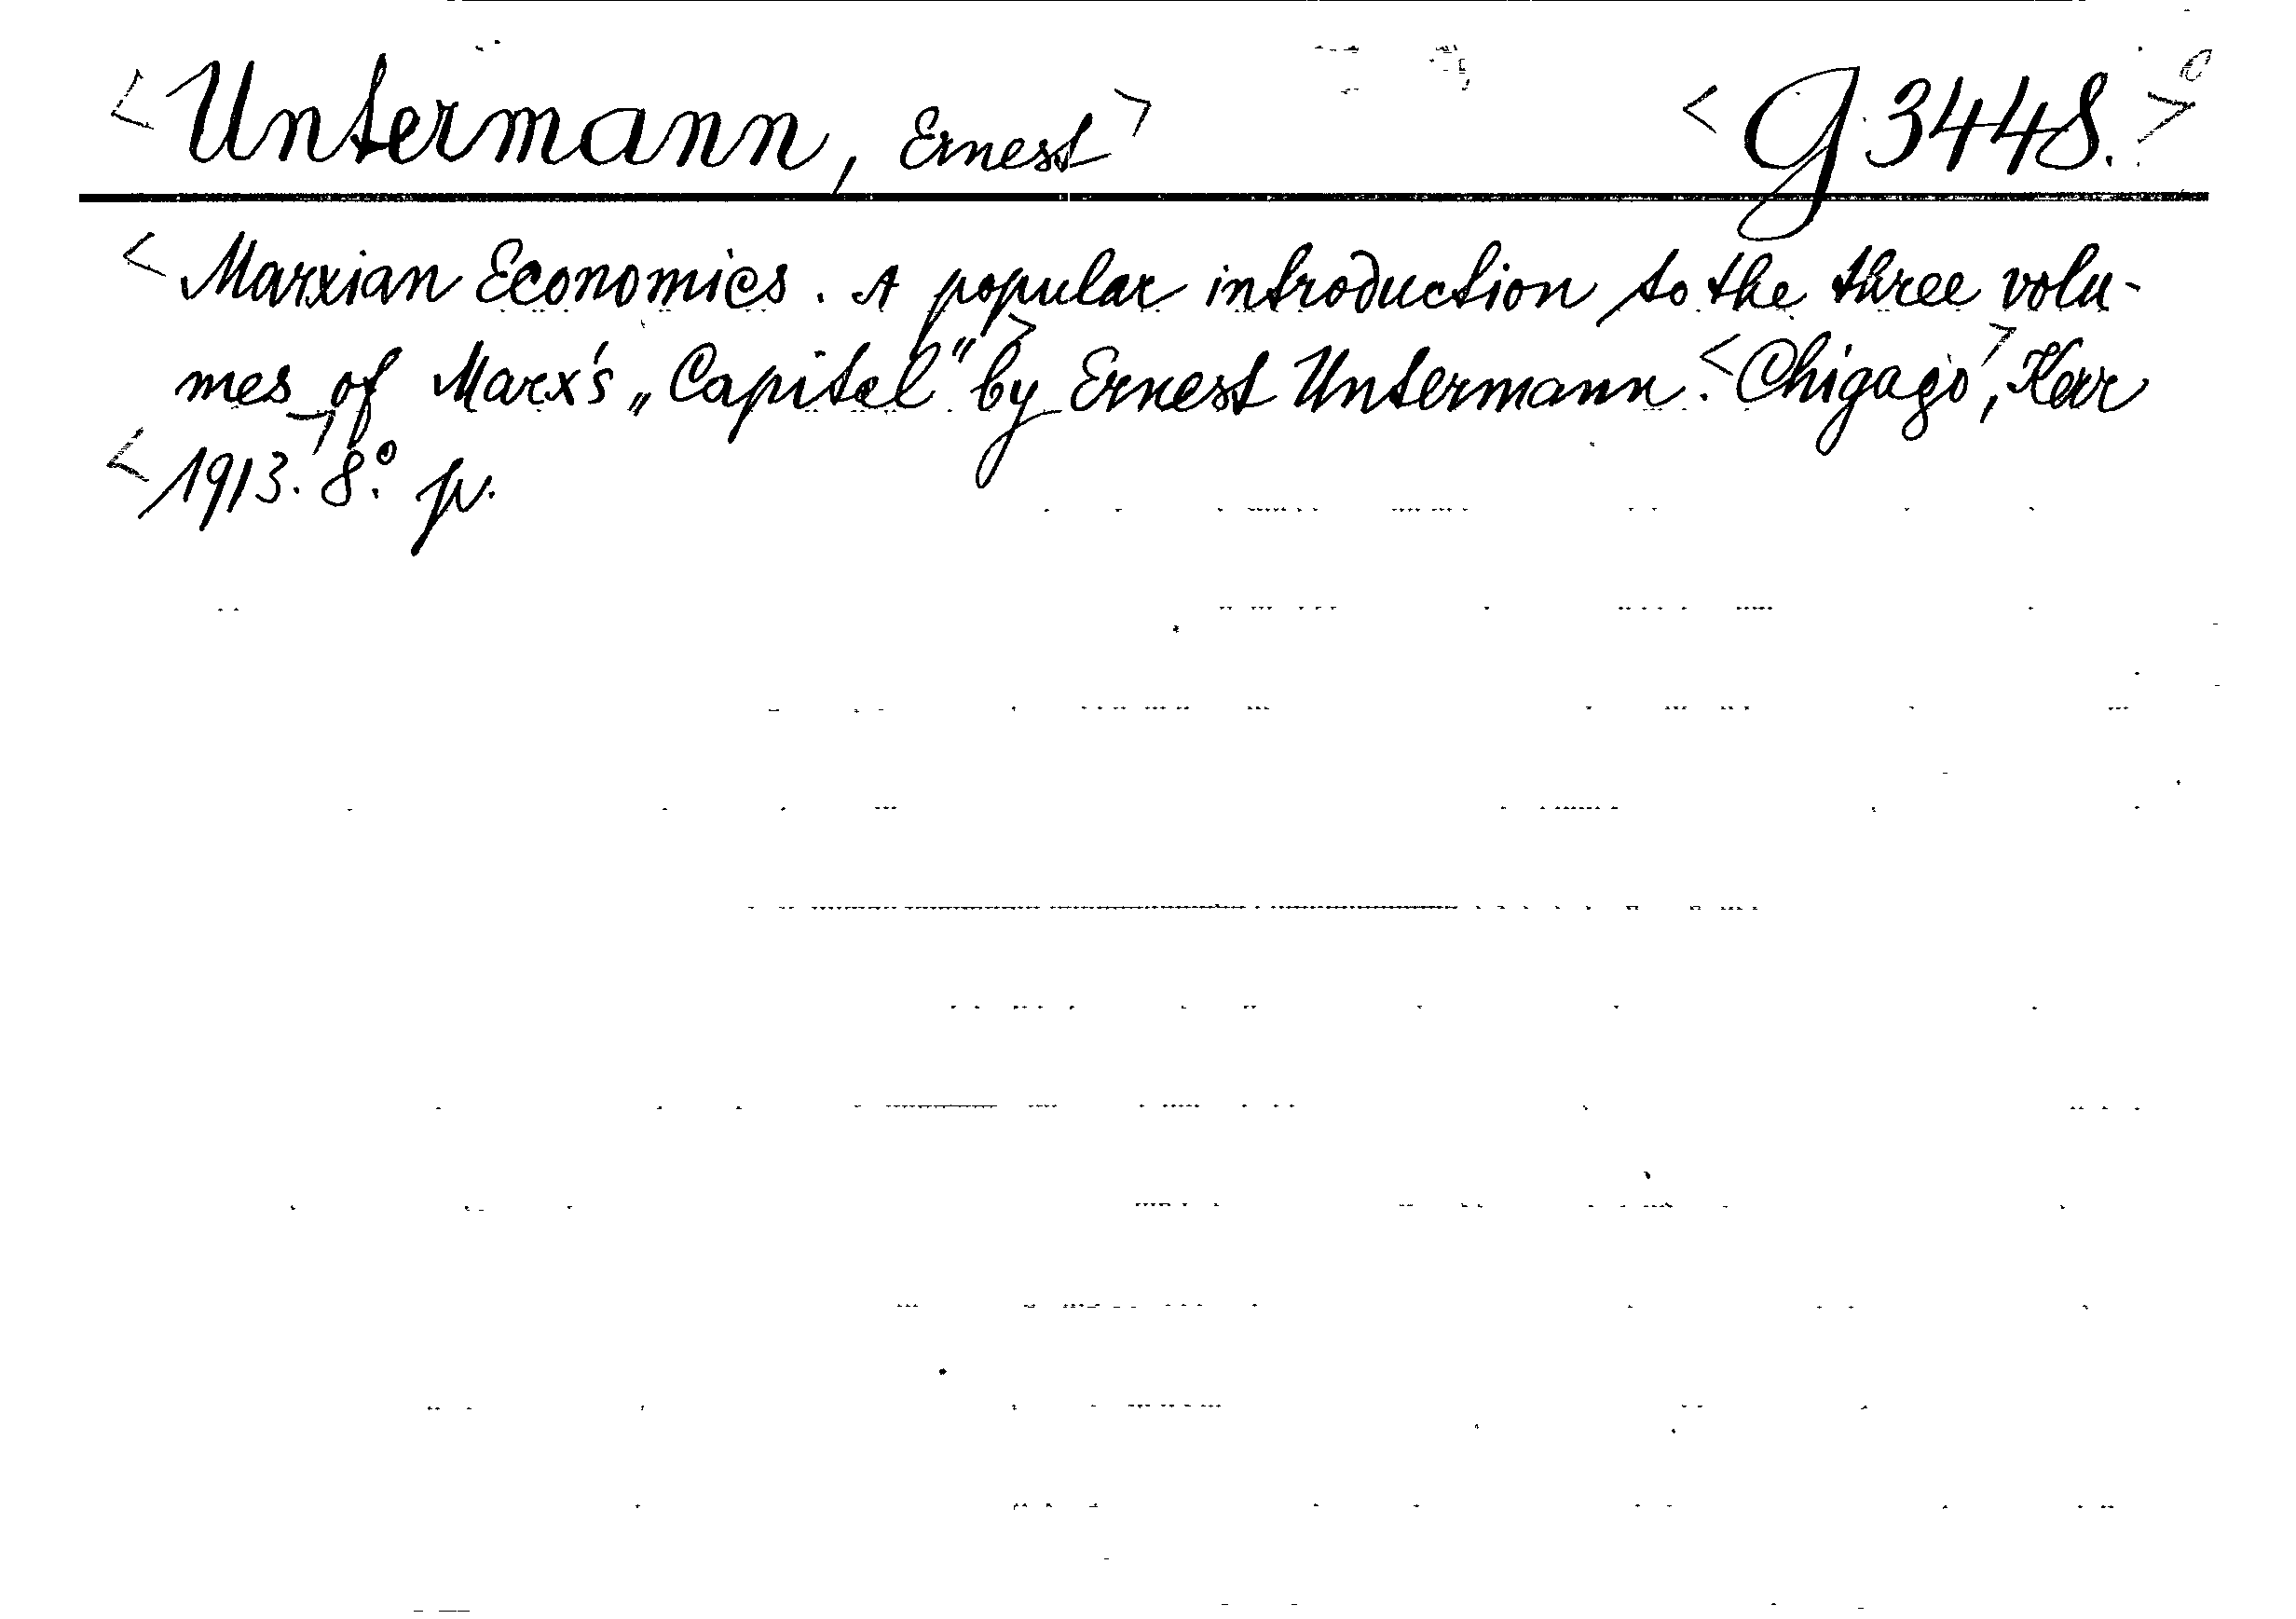 <Untermann, Ernest> <G 3448.>
<Marxian Economics. A popular introduction to the three volu-
mes of Marx's „Capital"> by Ernest Untermann. <Chigago>, Kerr
<1913.> 8.° p.